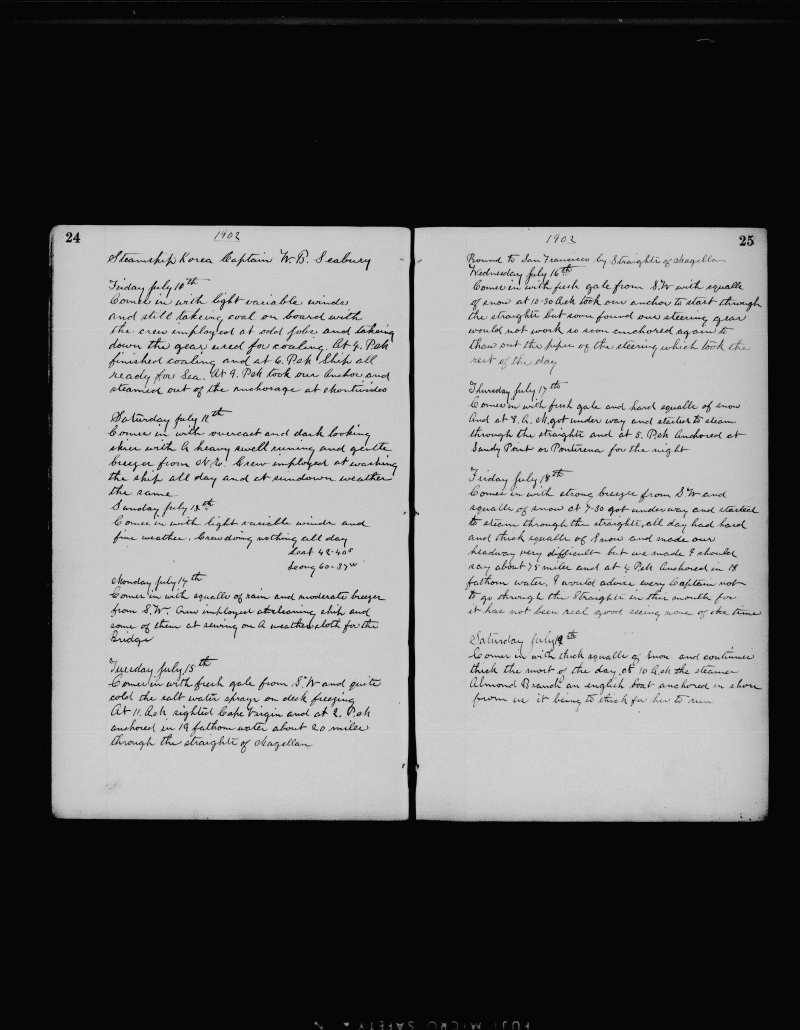 24
1902
Steamship Korea Captain W. B. Seabury
Friday July 10th
Comes in with light variable winds
and still takeing coal on board with
the crew employed at odd jobs and takeing
down the gear used for coaling. At 4. P.M
finished coaling and at 6. P.M Ship all
ready for Sea. At 9. P.M took our Anchor and
steamed out of the anchorage at Montivideo
Saturday July 12th
Comes in with overcast and dark looking
skies with a heavy swell runing and gentle
breezes from N.E. Crew employed at washing
the ship all day and at sundown weather
the same
Sunday July 13th
Comes in with light variable winds and
fine weather. Crew doing nothing all day
Lat 42-40S
Long 60-37W
Monday July 14th
Comes in with squalls of rain and moderate breezes
from S.W. Crew employed at cleaning ship and
some of them at sewing on a weather cloth for the
Bridge
Tuesday July 15th
Comes in with fresh gale from S.W and quite
cold the salt water sprays on deck freezing
At 11. A.M sighted Cape Virgin and at 2. P.M
anchored in 19 fathom water about 20 miles
through the straights of Magellan
25
1902
Bound to San Francisco by Straights of Magellan
Wednesday July 16th
Comes in with fresh gale from S.W with squalls
of snow at 10-30 A.M took our anchor to start through
the straights but soon found our steering gear
would not work so soon anchored again to
thaw out the pipes of the steering which took the
rest of the day
Thursday July 17th
Comes in with fresh gale and hard squalls of snow
And at 8. A. M. got under way and started to steam
through the straights and at 5. P.M Anchored at
Sandy Point or Puntirena for the night
Firday July 18th
Comes in with strong breezes from S.W and
squalls of snow at 7-30 got underway and started
to steam through the straights, all day had hard
and thick squalls of Snow and made our
headway very difficult but we made I should
say about 75 miles and at 4 P.M Anchored in 18
fathom water, I would advise every Captain not
to go through the Straights in this month for
it has not been real good seeing none of the time
Saturday July 19th
Comes in with thick squalls of Snow and continues
thick the most of the day, at 10 A.M the steamer
Almond Branch an english boat anchored in shore
from us it being to thick for her to run
FUJI MICRO SAFETY